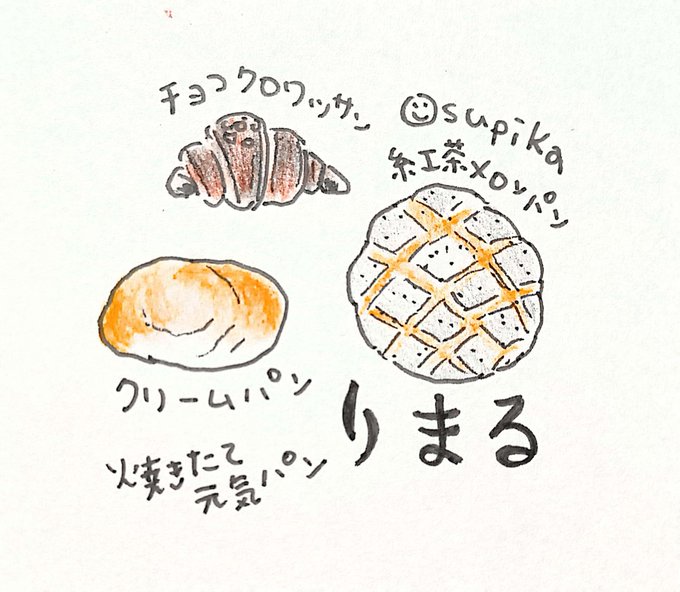 チョコクロワッサン
supika
紅茶メロンパン
クリームパン
りまる
焼きたて
元気パン